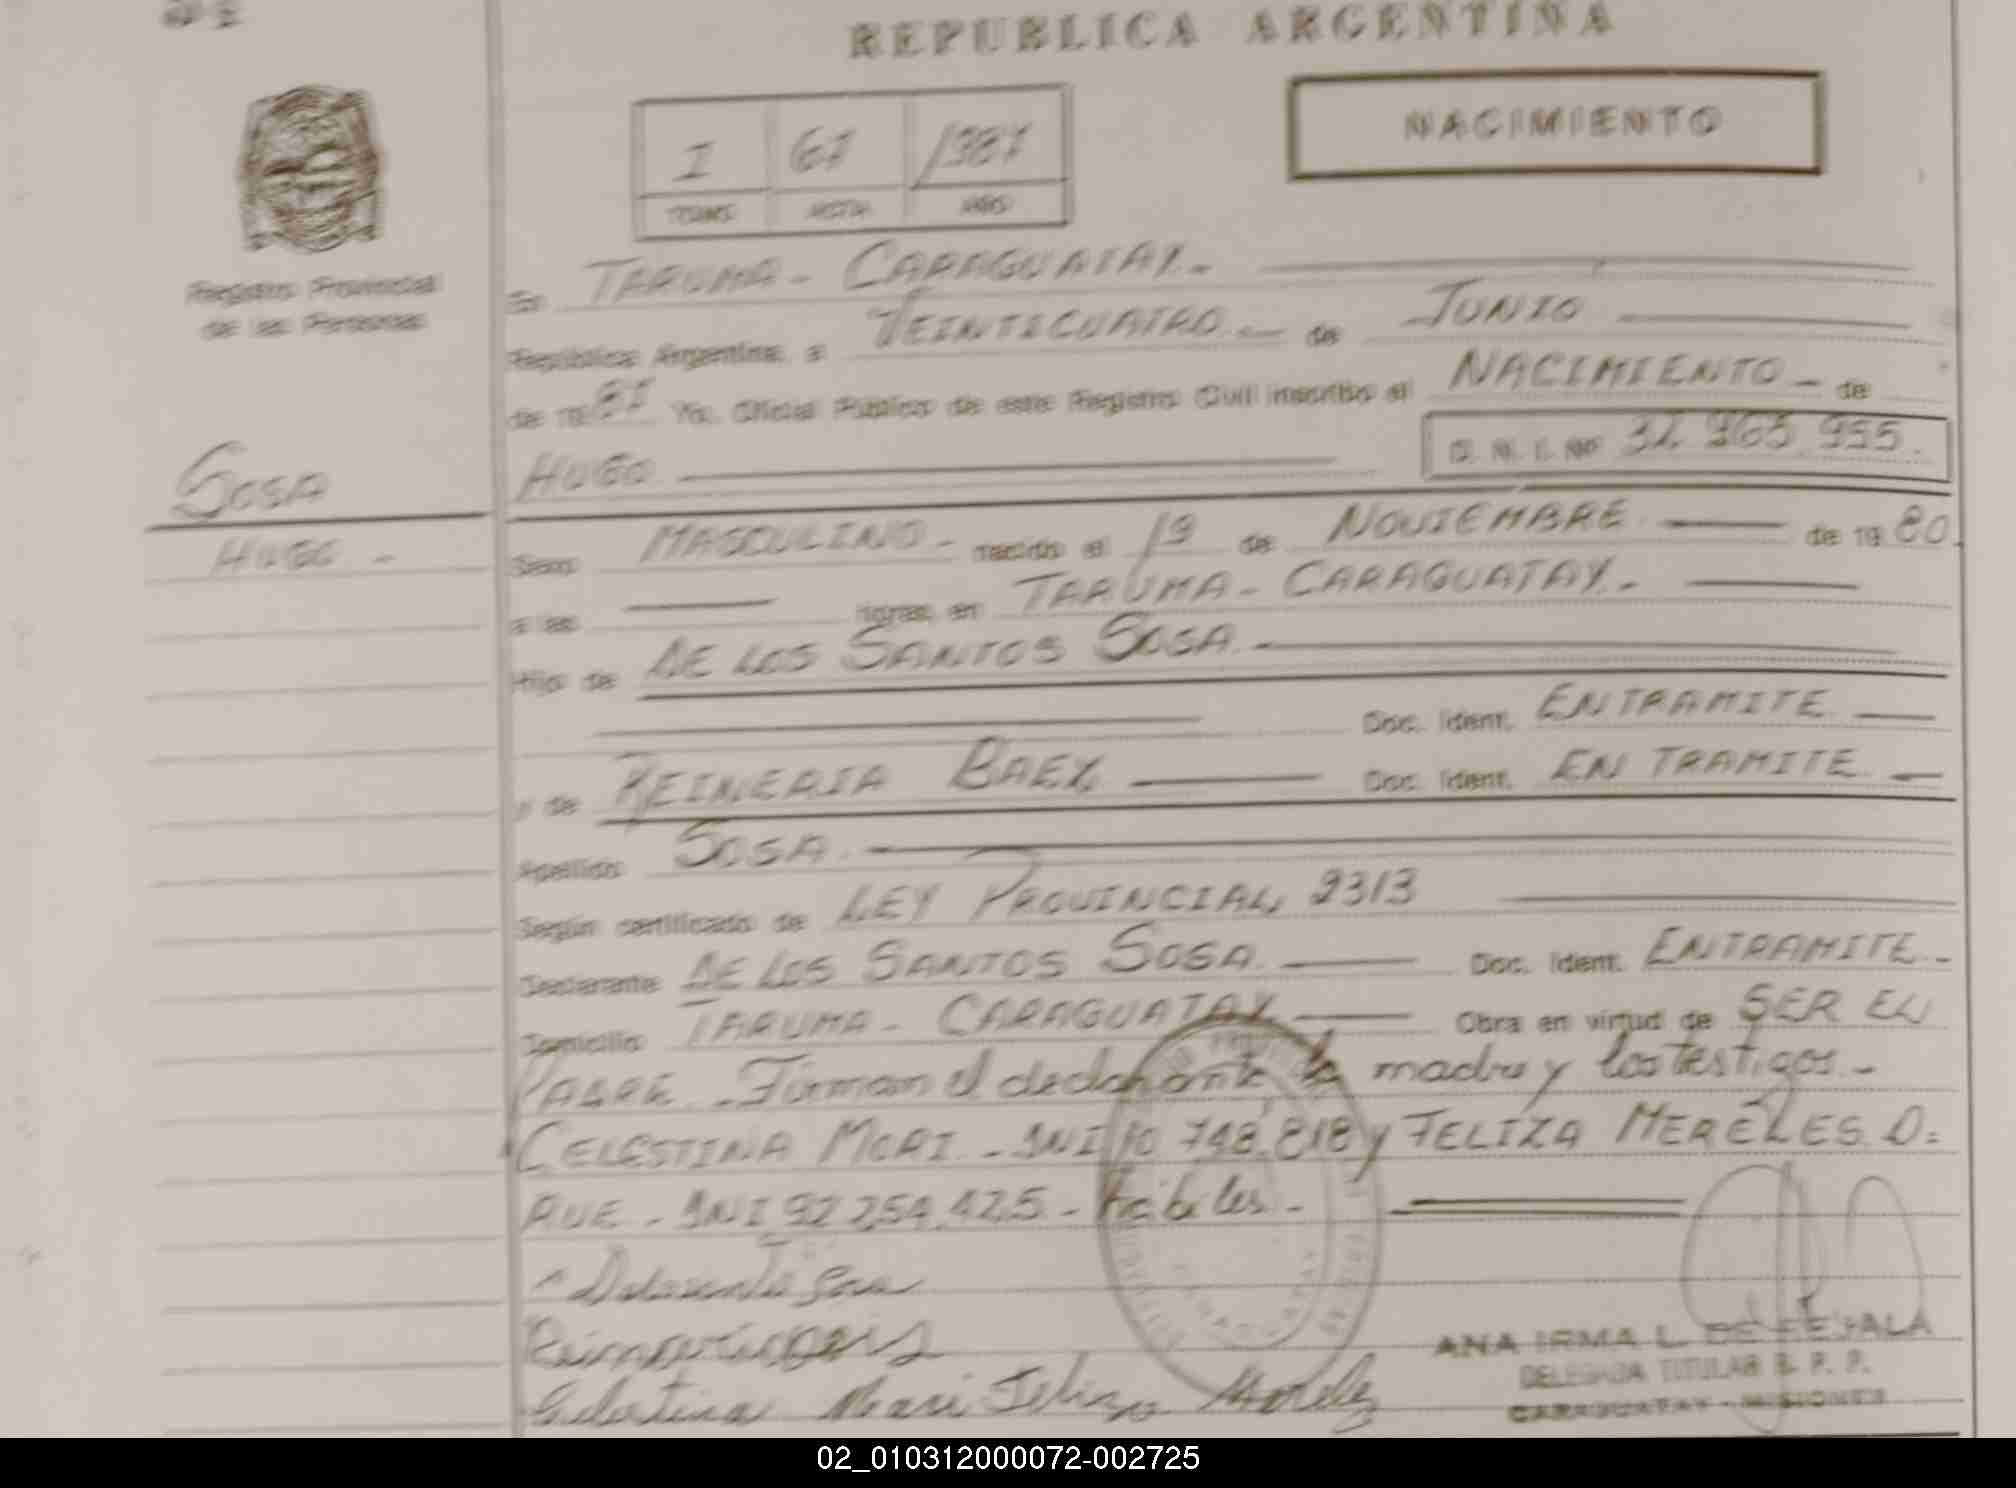 REPUBLICA ARGENTINA
NACIMIENTO
I 61 1987
TOMO ACTA AÑO
Registro Provincial
de las Personas
En TARUMA - CARAGUATAY.-
República Argentina, a VEINTICUATRO.- de JUNIO
de 19 87 Yo, Oficial Público de este Registro Civil inscribo el NACIMIENTO - de
HUGO D. N. I. Nº 32 963 995.
SOSA
HUGO -
Sexo MASCULINO - nacido el 19 de NOVIEMBRE de 19 80.
a las horas, en TARUMA - CARAGUATAY.-
Hijo de DE LOS SANTOS SOSA.-
Doc. Ident. EN TRAMITE
y de REINERIA BAEZ Doc. Ident. EN TRAMITE.
Apellido SOSA.
Según certificado de LEY PROVINCIAL 2313
Declarante DE LOS SANTOS SOSA. Doc. Ident. EN TRAMITE.-
Domicilio TARUMA - CARAGUATAY Obra en virtud de SER EL
PADRE.- Firman el declarante la madre y los testigos.-
CELESTINA MORI.- DNI 10 748.818 y FELIZA MERÉLES D=
AVE - DNI 92 254.425 - hábiles.-
ANA IRMA L. DE
DELEGADA TITULAR R. P. P.
CARAGUATAY - MISIONES
02_010312000072-002725